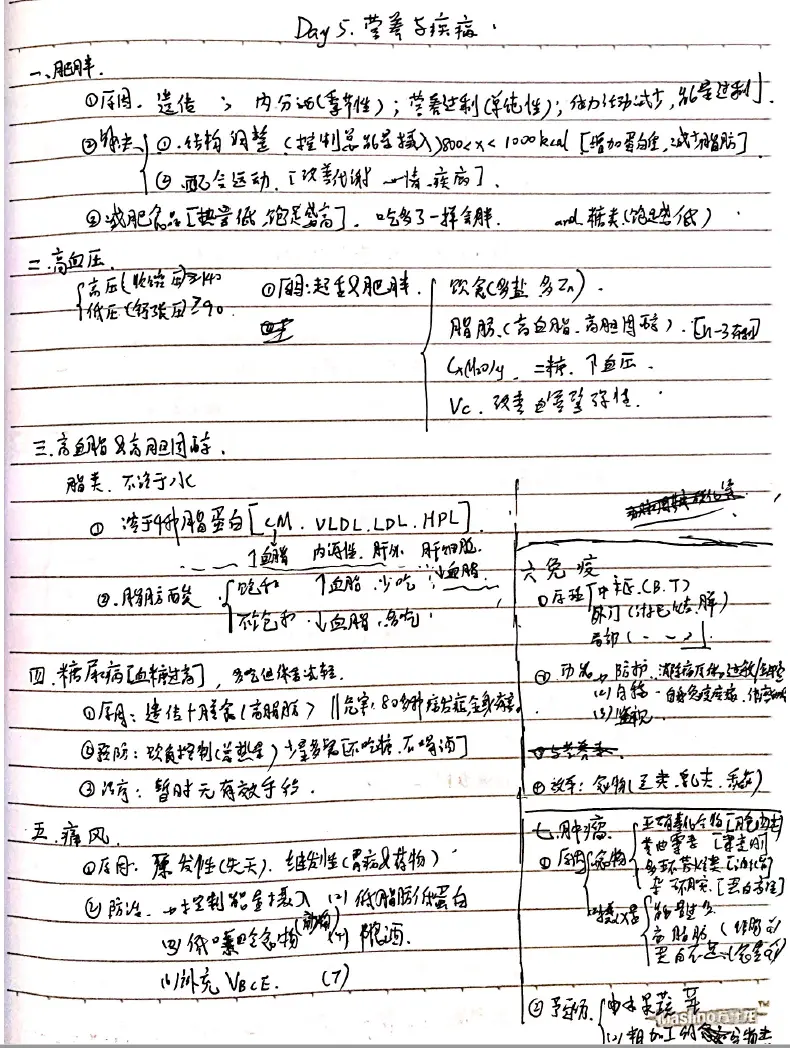 Day 5. 营养与疾病.
一、肥胖.
①原因. 遗传; 内分泌(季节性); 营养过剩(单纯性); 体力活动减少, 能量过剩].
②解决 ①. 结构调整 (控制总能量摄入)800<x<1000kcal [增加蛋白质, 减少脂肪]
②. 配合运动. [改善代谢 情. 疾病].
③减肥食品[热量低, 饱足感高]. 吃多了一样会胖. and. 糖类(饱足感低)
二. 高血压.
高压(收缩压)≥140
低压(舒张压)≥90.
①原因: 超重及肥胖.
饮食(多盐 多Zn).
脂肪.(高血脂. 高胆固醇). [n-3系列]
Cx(H2O)y. 二糖. 下血压.
Vc. 改善血管壁弹性.
三. 高血脂及高胆固醇.
脂类. 不溶于水
① 溶于4种脂蛋白[CM. VLDL. LDL. HPL]
↑血脂 内源性. 肝外. 肝细胞.
↓血脂
②. 脂肪酸. 饱和 ↑血脂. 少吃;
不饱和 ↓血脂. 多吃.
四. 糖尿病[血糖过高],
①原因: 遗传+膳食(高脂肪) || 危害: 80多种并发症, 全身有害.
②预防: 饮食控制(总热量) 少量多餐[不吃糖. 不喝酒]
③治疗: 暂时无有效手段.
五. 痛风
①原因: 原发性(先天). 继发性(胃病及药物)
②防治. 控制能量摄入 (2) 低脂肪低蛋白
(3) 低嘌呤食物(动物) (4) 限酒.
补充 VBCE. (7)
六 免疫
①屏障 中枢.(B.T)
局部
② 功能 防护.
(2) 自稳
(3) 监视
④ 改善: 食物(豆类. 乳类.
七. 肿瘤.
① 原因 食物 亚硝基化合物
黄曲霉毒
多环芳烃类
杂环胺.
能量过多
高脂肪
蛋白不足
② 预防.
(2) 粗加工的